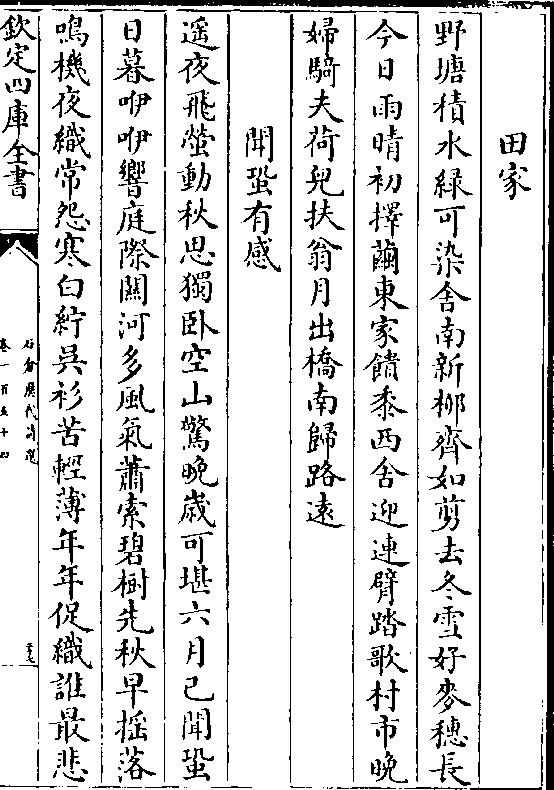 田家
野塘積水緑可染舍南新柳齊如剪去冬雪好麥穗長
今日雨晴初擇繭東家饋黍西舍迎連臂踏歌村市晚
婦騎夫荷兒扶翁月出橋南歸路遠
聞蛩有感
遥夜飛螢動秋思獨卧空山驚晚歳可堪六月已聞蛩
日暮咿咿響庭際關河多風氣蕭索碧樹先秋早揺落
鳴機夜織常怨寒白紵吳衫苦輕薄年年促織誰最悲
欽定四庫全書
石倉歴代詩選
卷一百五十四